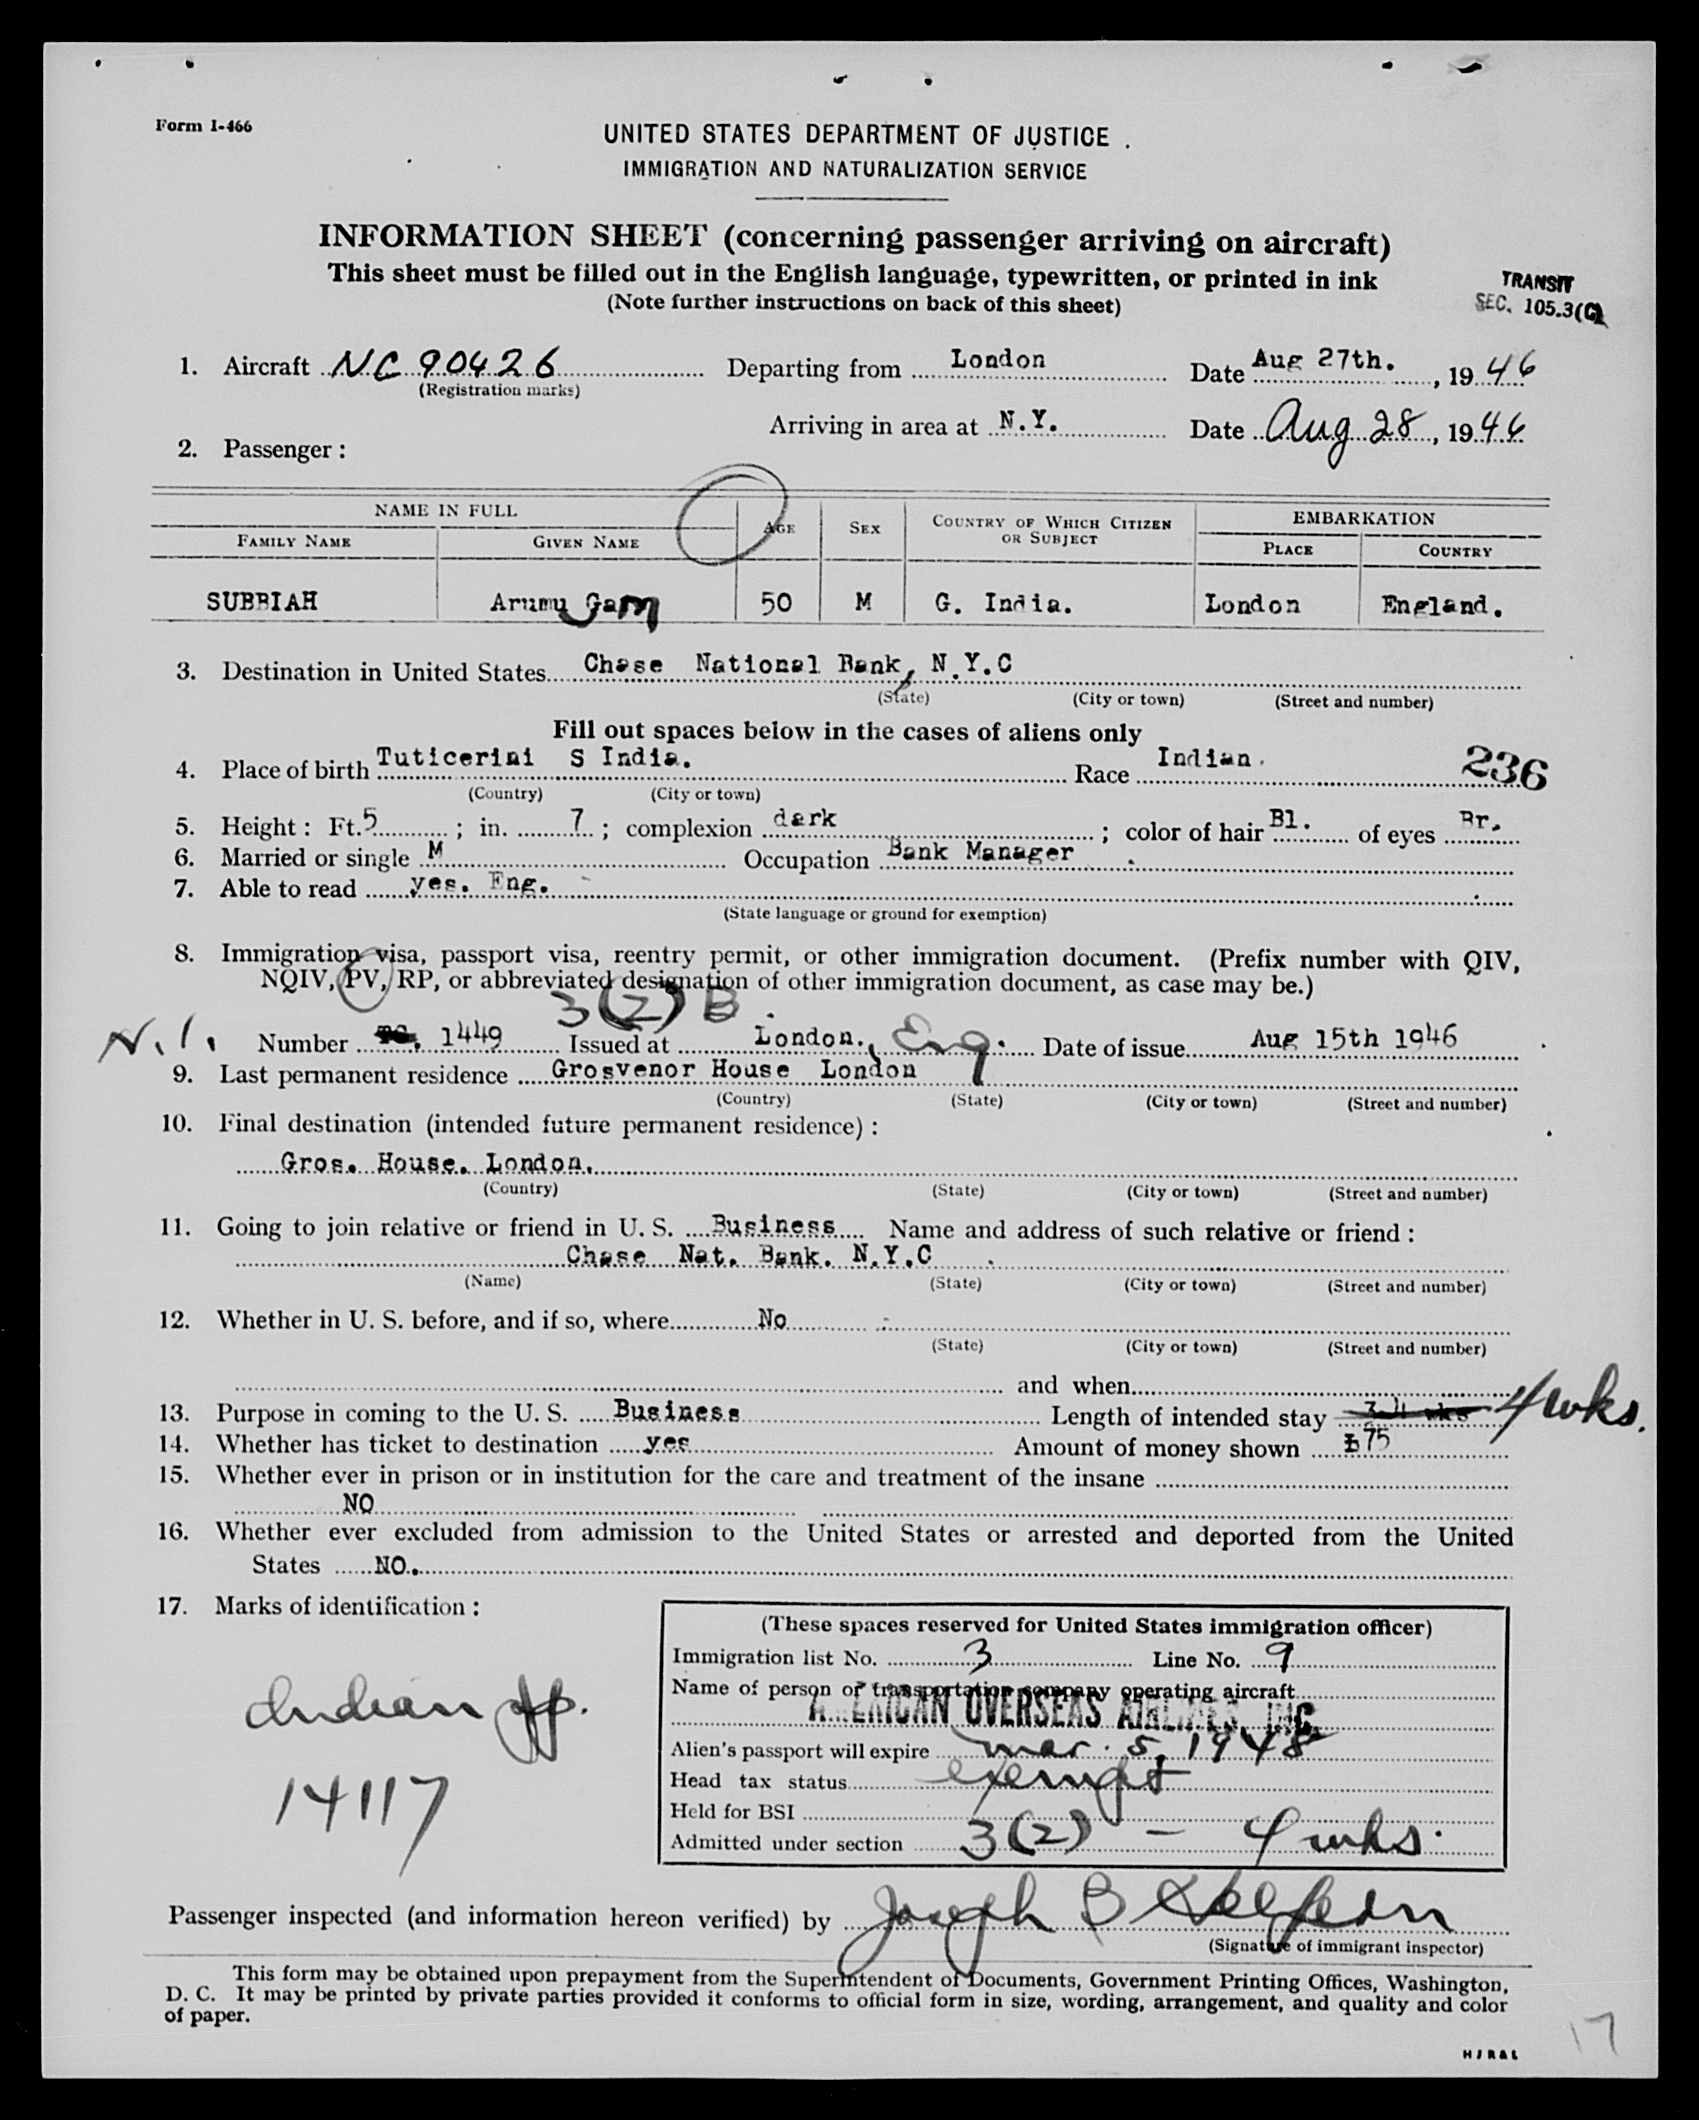 Form I-466
UNITED STATES DEPARTMENT OF JUSTICE
IMMIGRATION AND NATURALIZATION SERVICE
INFORMATION SHEET (concerning passenger arriving on aircraft)
This sheet must be filled out in the English language, typewritten, or printed in ink
(Note further instructions on back of this sheet)
TRANSIT
SEC. 105.3(C)
1. Aircraft NC 90426 Departing from London Date Aug 27th. , 1946
(Registration marks)
Arriving in area at N.Y. Date Aug 28, 1946
2. Passenger :
NAME IN FULL AGE SEX COUNTRY OF WHICH CITIZEN OR SUBJECT EMBARKATION
FAMILY NAME GIVEN NAME PLACE COUNTRY
SUBBIAH Arumu Gam 50 M G. India. London England.
3. Destination in United States Chase National Bank, N.Y.C
(State) (City or town) (Street and number)
Fill out spaces below in the cases of aliens only
4. Place of birth Tuticerini S India. Race Indian. 236
(Country) (City or town)
5. Height : Ft. 5 ; in. 7 ; complexion dark ; color of hair Bl. of eyes Br.
6. Married or single M Occupation Bank Manager
7. Able to read yes. Eng.
(State language or ground for exemption)
8. Immigration visa, passport visa, reentry permit, or other immigration document. (Prefix number with QIV,
NQIV, PV, RP, or abbreviated designation of other immigration document, as case may be.)
3(2) B
N.I. Number 1449 Issued at London., Eng. Date of issue Aug 15th 1946
9. Last permanent residence Grosvenor House London
(Country) (State) (City or town) (Street and number)
10. Final destination (intended future permanent residence) :
Gros. House. London.
(Country) (State) (City or town) (Street and number)
11. Going to join relative or friend in U. S. Business Name and address of such relative or friend :
Chase Nat. Bank. N.Y.C
(Name) (State) (City or town) (Street and number)
12. Whether in U. S. before, and if so, where No
(State) (City or town) (Street and number)
and when
13. Purpose in coming to the U. S. Business Length of intended stay 4 wks.
14. Whether has ticket to destination yes Amount of money shown £75
15. Whether ever in prison or in institution for the care and treatment of the insane
NO
16. Whether ever excluded from admission to the United States or arrested and deported from the United
States NO.
17. Marks of identification :
Indian pp.
14117
(These spaces reserved for United States immigration officer)
Immigration list No. 3 Line No. 9
Name of person or transportation company operating aircraft
AMERICAN OVERSEAS AIRLINES, INC.
Alien's passport will expire mar. 5, 1948
Head tax status exempt
Held for BSI
Admitted under section 3(2) - 4 wks.
Passenger inspected (and information hereon verified) by Joseph B
(Signature of immigrant inspector)
This form may be obtained upon prepayment from the Superintendent of Documents, Government Printing Offices, Washington,
D. C. It may be printed by private parties provided it conforms to official form in size, wording, arrangement, and quality and color
of paper.
17
HJR&L